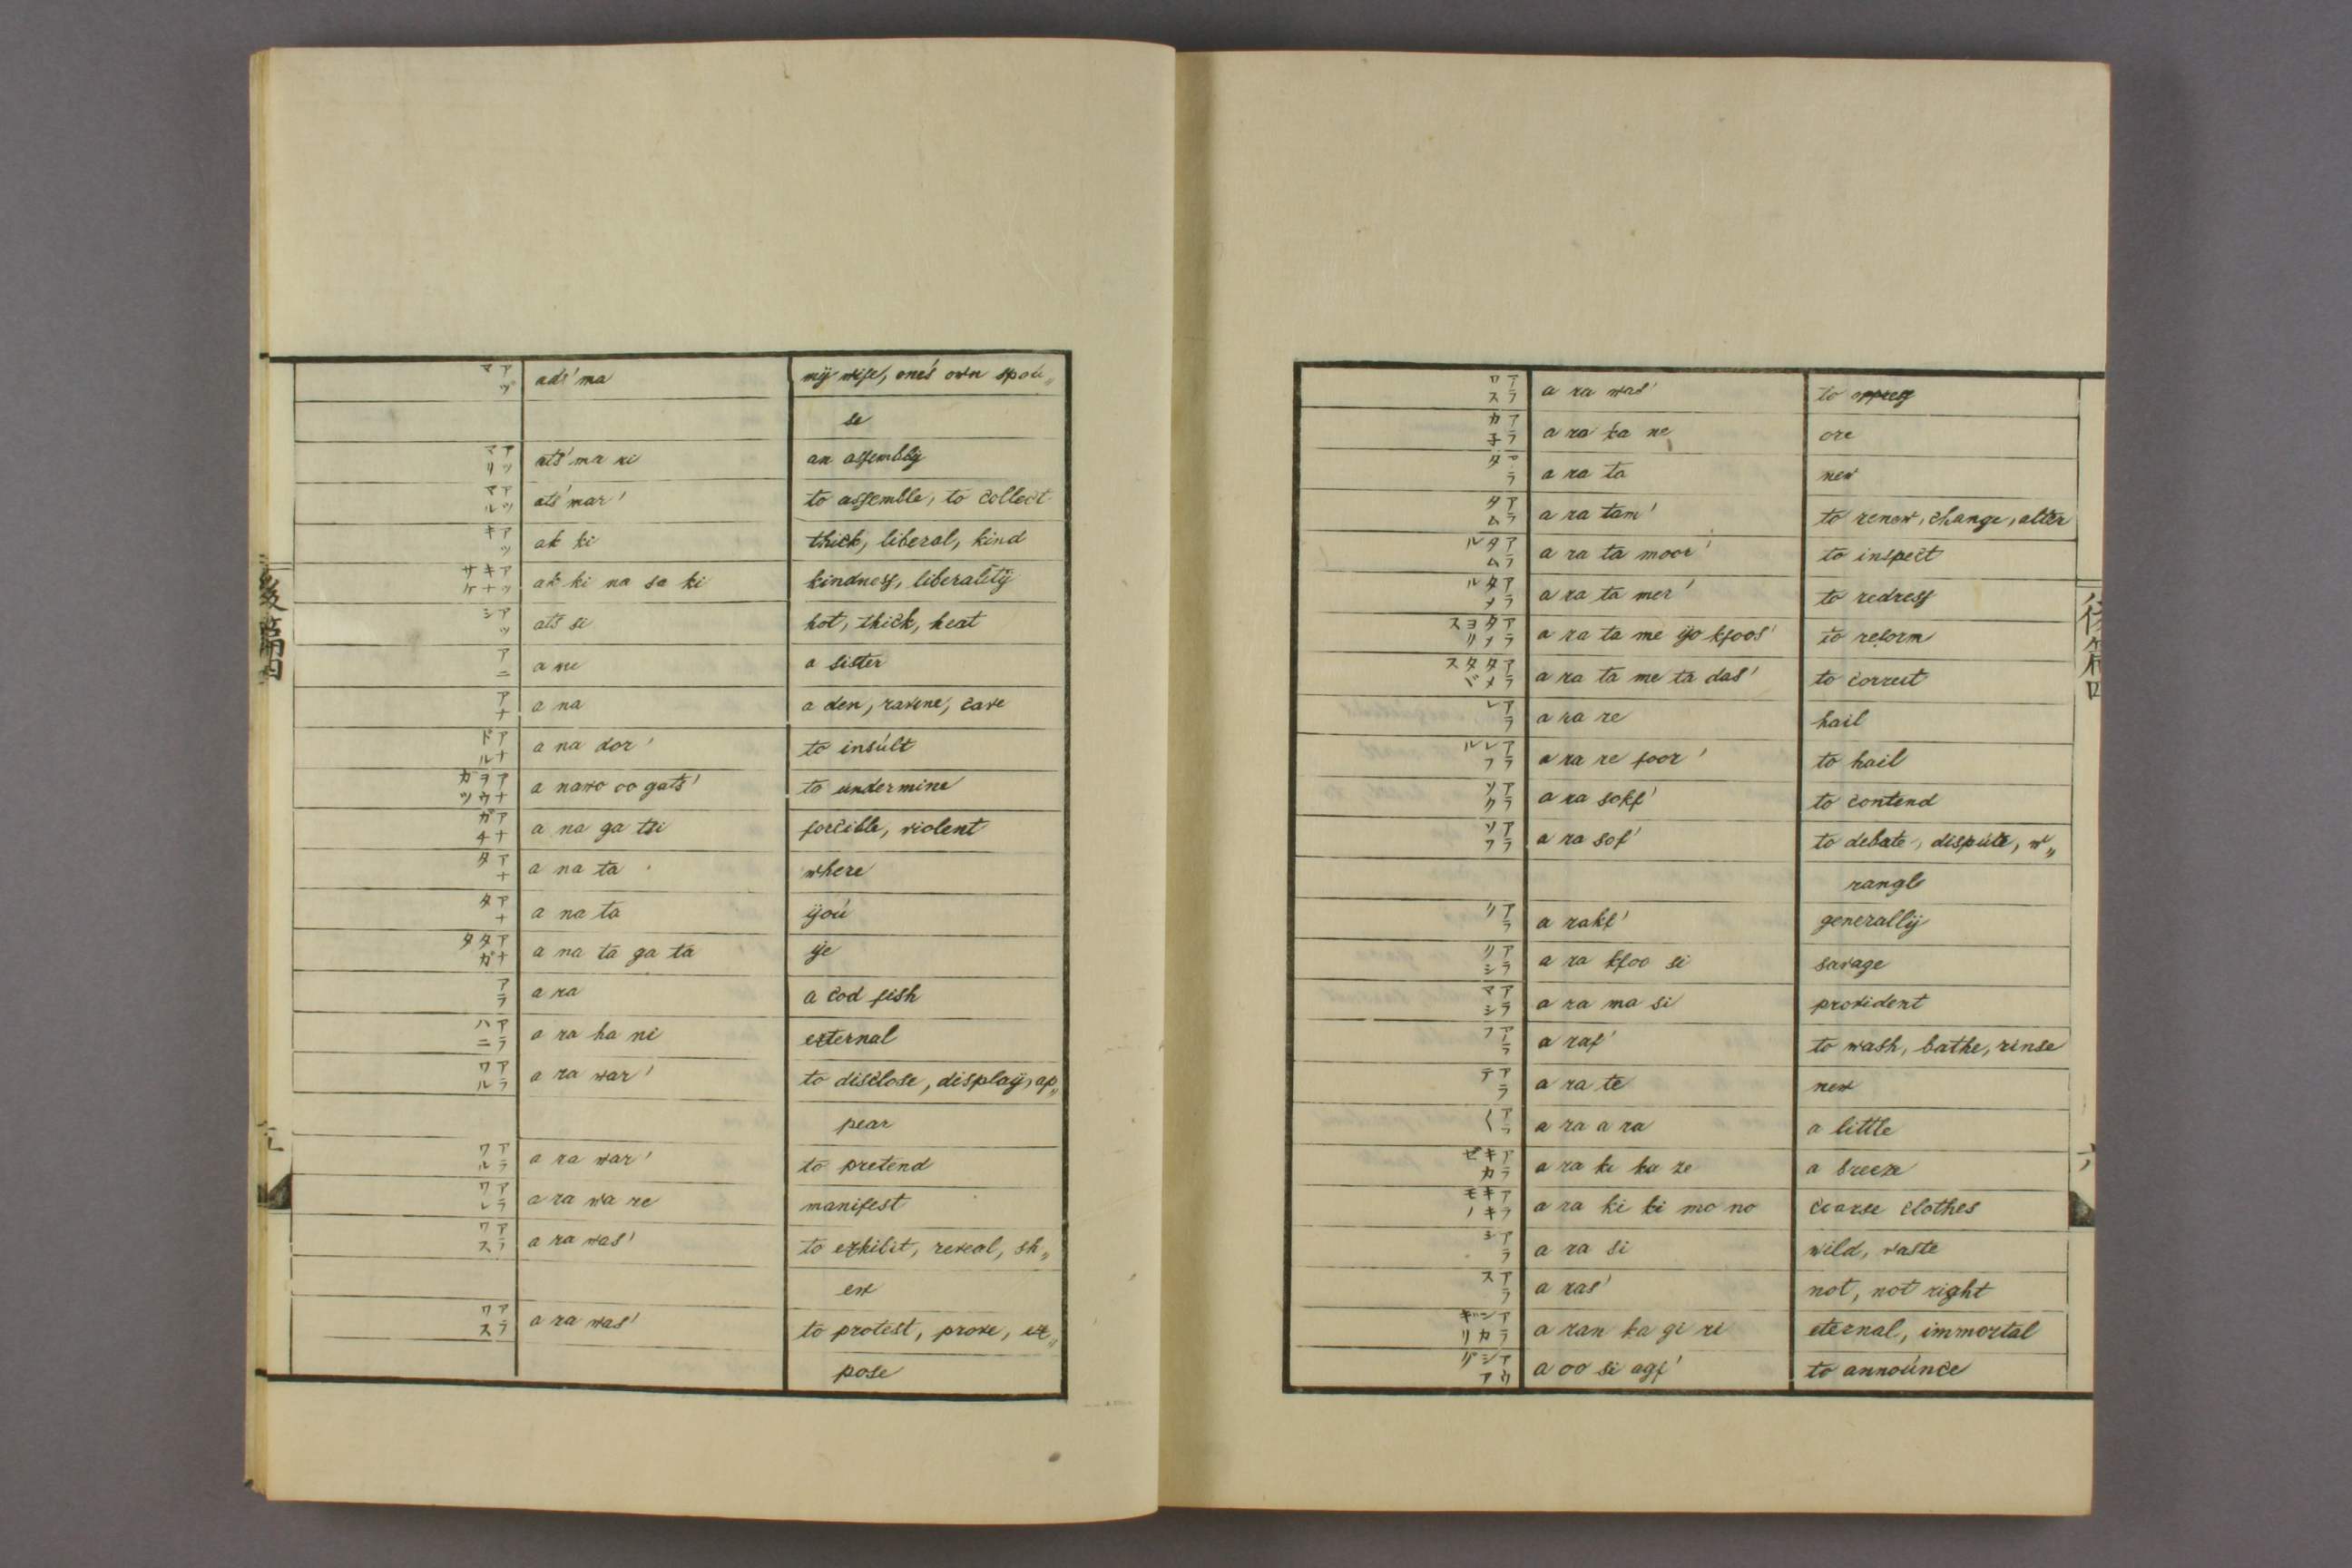 アヅマ ads' ma my wife, one's own spou„
se
アツマリ ats' ma ri an assembly
アツマル ats' mar' to assemble, to collect
アツキ ak ki thick, liberal, kind
アツキナサケ ak ki na sa ki kindness, liberality
アツシ ats si hot, thick, heat
アニ a ne a sister
アナ a na a den, ravine, cave
アナドル a na dor' to insult
アナヲウガツ a nawo oo gats' to undermine
アナガチ a na ga tsi forcible, violent
アナタ a na ta where
アナタ a na ta you
アナタガタ a na ta ga ta ye
アラ a ra a cod fish
アラハニ a ra ha ni external
アラワル a ra war' to disclose, display, ap„
pear
アラワル a ra war' to pretend
アラワレ a ra wa re manifest
アラワス a ra was' to exhibit, reveal, sh„
ew
アラワス a ra was' to protest, prove, ex„
pose
アラワス a ra was' to
アラカ子 a ra ka ne ore
アラタ a ra ta new
アラタム a ra tam' to renew, change, alter
アラタムル a ra ta moor' to inspect
アラタメル a ra ta mer' to redress
アラタメヨリス a ra ta me yo kfoos' to reform
アラタメタヾス a ra ta me ta das' to correct
アラレ a ra re hail
アラレフル a ra re foor' to hail
アラソク a ra sokf' to contend
アラソフ a ra sof' to debate, dispute, w„
rangle
アラリ a rakf' generally
アラリシ a ra kfoo si savage
アラマシ a ra ma si provident
アラフ a raf' to wash, bathe, rinse
アラテ a ra te new
アラ〱 a ra a ra a little
アラキカゼ a ra ki ka ze a breeze
アラキキモノ a ra ki ki mo no coarse clothes
アラシ a ra si wild, waste
アラス a ras' not, not right
アランカギリ a ran ka gi ri eternal, immortal
アウシアグ a oo si agf' to announce
後篇
六